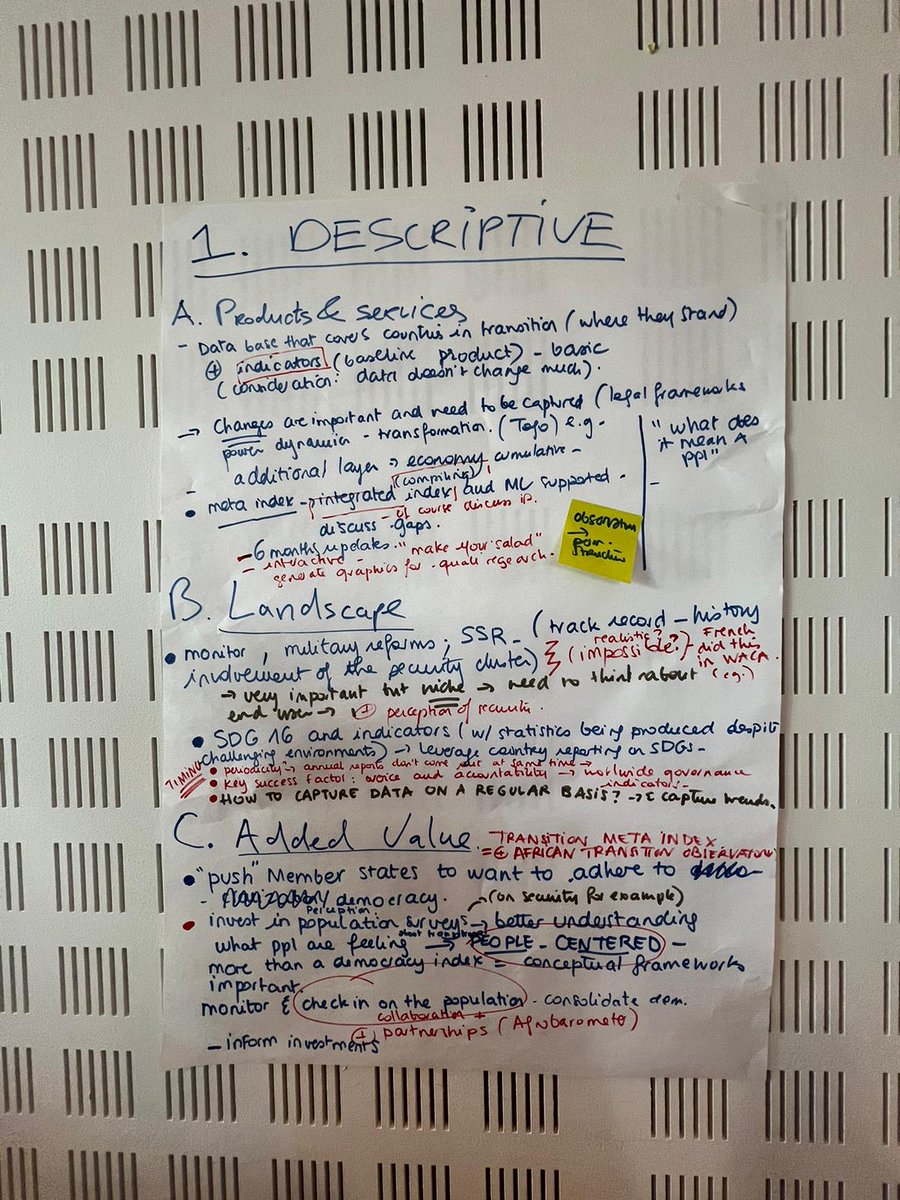 1. DESCRIPTIVE
A. Products & services
- Data base that covers countries in transition (where they stand)
+ indicators (baseline product) - basic
(consideration: data doesn't change much).
→ Changes are important and need to be captured (legal frameworks
power dynamics - transformation. (Togo) e.g.
- additional layer → economy cumulative -
(compiling)
• meta index - integrated index and ML supported.
of course discuss
discuss gaps.
- 6 months updates. "make your salad"
- interactive -
generate graphics for quali research.
"what does
it mean
ppl"
-
observation
→ peer
B. Landscape
• monitor, military reforms; SSR - (track record - history
involvement of the security cluster)
realistic?
(impossible?) - French
did this
in WACA
(e.g.)
→ very important but niche → need to think about
end user →
perception of security.
• SDG 16 and indicators (w/ statistics being produced despite
challenging environments) → leverage country reporting on SDGs -
TIMING
• periodicity → annual reports don't come out at same time →
• key success factor: voice and accountability → worldwide governance
indicators -
• HOW TO CAPTURE DATA ON A REGULAR BASIS? → capture trends.
C. Added Value
TRANSITION META INDEX
= AFRICAN TRANSITION OBSERVATORY
• "push" Member states to want to adhere to
- democracy.
(on security for example)
perception
• invest in population surveys → better understanding
what ppl are feeling → PEOPLE-CENTERED -
more than a democracy index = conceptual frameworks
important.
monitor & check in on the population - consolidate dem.
collaboration +
partnerships (Afrobarometer)
- inform investments